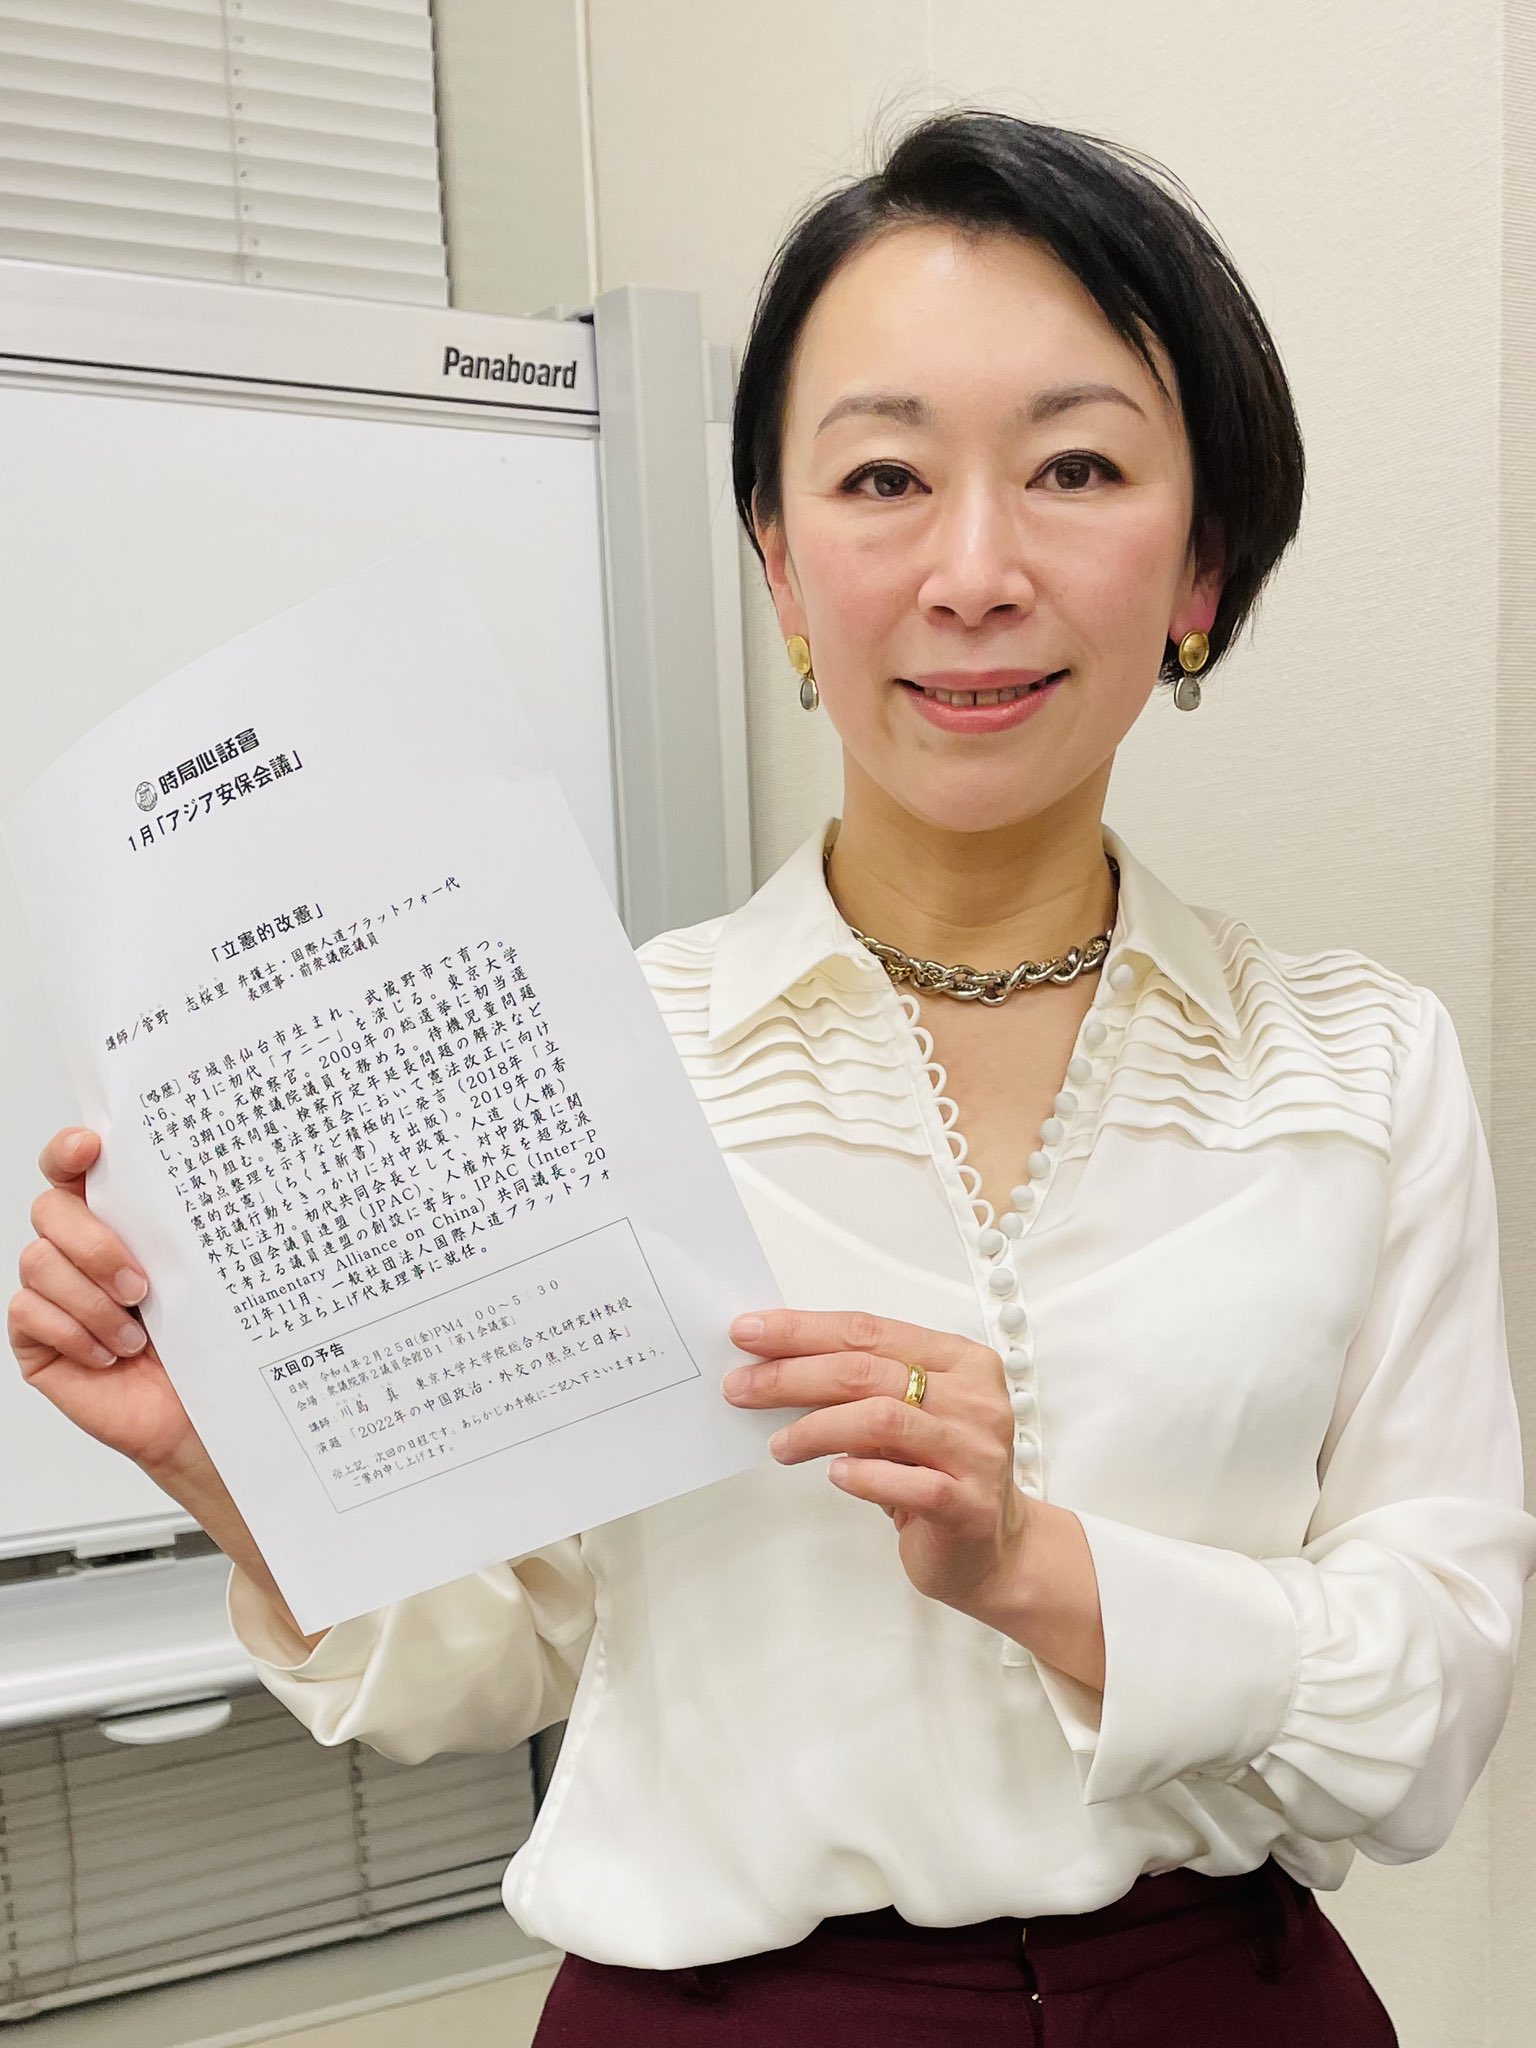 Panaboard
時局心話會
1月「アジア安保会議」
「立憲的改憲」
講師／菅野 志桜里 弁護士・国際人道プラットフォー代
表理事・前衆議院議員
[略歴] 宮城県仙台市生まれ、武蔵野市で育つ。
小6、中1に初代「アニー」を演じる。東京大学
法学部卒。元検察官。2009年の総選挙に初当選
し、3期10年衆議院議員を務める。待機児童問題
や皇位継承問題、検察庁定年延長問題の解決など
に取り組む。憲法審査会において憲法改正に向け
た論点整理を示すなど積極的に発言（2018年「立
憲的改憲」（ちくま新書）を出版）。2019年の香
港抗議行動をきっかけに対中政策、人道（人権）
外交に注力。初代共同会長として、対中政策に関
する国会議員連盟（JPAC）、人権外交を超党派
で考える議員連盟の創設に寄与。IPAC（Inter-P
arliamentary Alliance on China）共同議長。20
21年11月、一般社団法人国際人道プラットフォ
ームを立ち上げ代表理事に就任。
次回の予告
日時 令和4年2月25日(金)PM4:00～5:30
会場 衆議院第2議員会館B1「第1会議室」
講師 川島 真 東京大学大学院総合文化研究科教授
演題 「2022年の中国政治・外交の焦点と日本」
※上記、次回の日程です。あらかじめ手帳にご記入下さいますよう、
ご案内申し上げます。